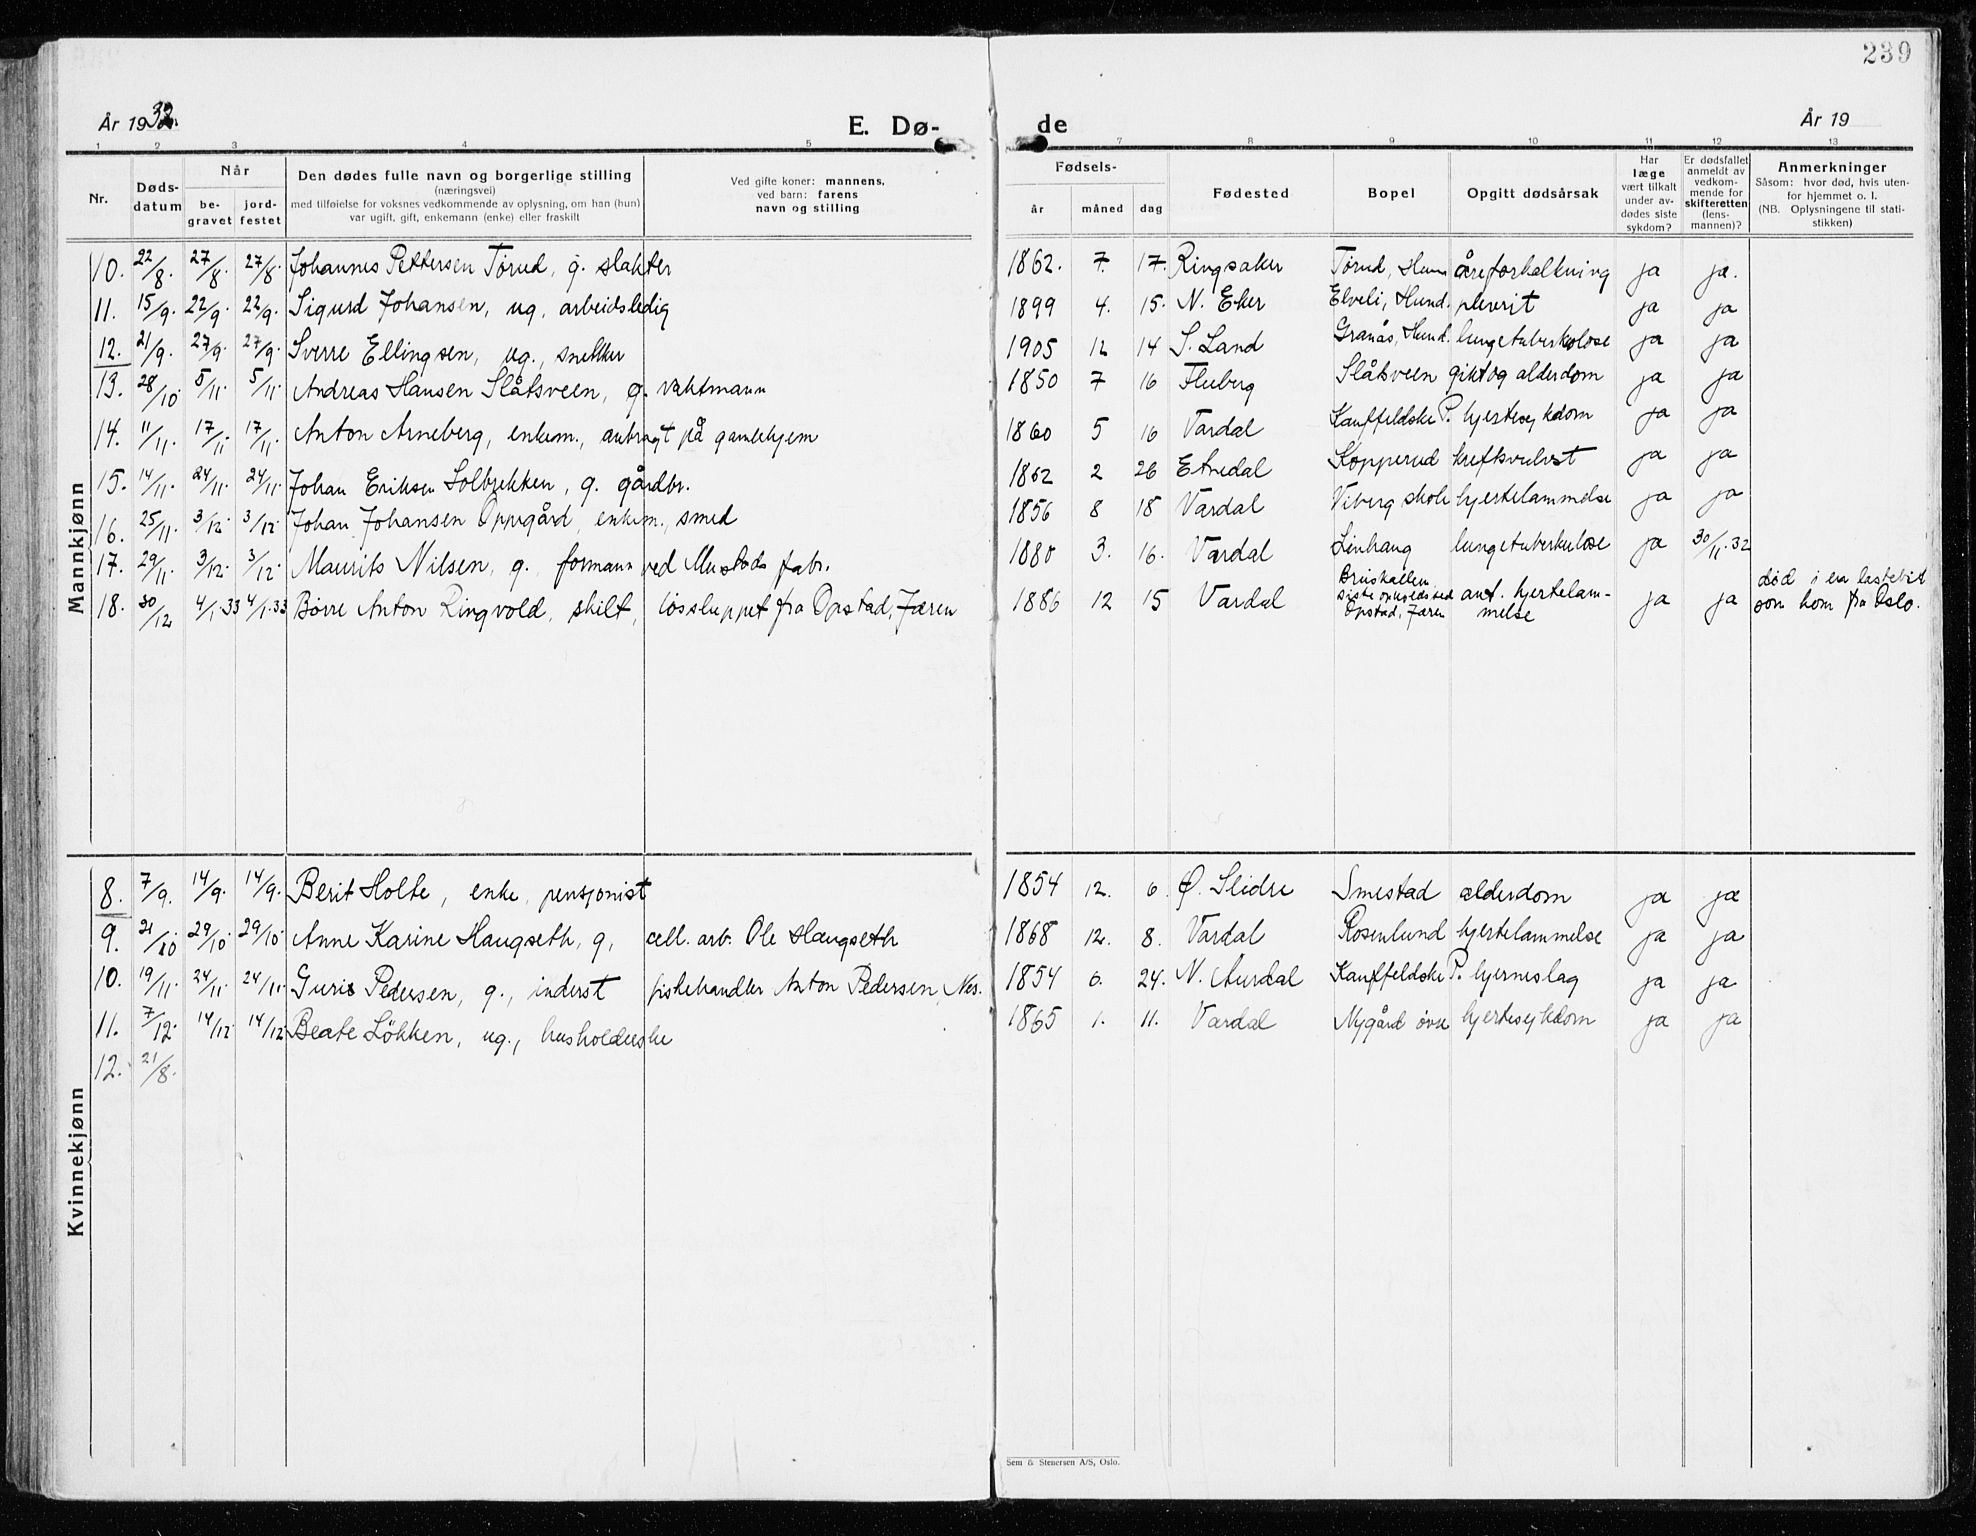 239
År 1932.
E. Dø-
de
År 19
1 2 3 4 5 7 8 9 10 11 12 13
Nr.
Døds-
datum
Når
be-
gravet
jord-
festet
Den dødes fulle navn og borgerlige stilling
(næringsvei)
med tilføielse for voksnes vedkommende av oplysning, om han (hun)
var ugift, gift, enkemann (enke) eller fraskilt
Ved gifte koner: mannens,
ved barn: farens
navn og stilling
Fødsels-
år måned dag
Fødested
Bopel
Opgitt dødsårsak
Har
læge
vært tilkalt
under av-
dødes siste
sykdom?
Er dødsfallet
anmeldt av
vedkom-
mende for
skifteretten
(lens-
mannen)?
Anmerkninger
Såsom: hvor død, hvis uten-
for hjemmet o. l.
(NB. Oplysningene til stati-
stikken)
Mannkjønn
10. 22/8. 27/8. 27/8. Johannes Pettersen Tørud, g. slakter 1862. 7. 17. Ringsaker Tørud, Hunn åreforkalkning ja ja.
11. 15/9. 22/9. 22/9. Sigurd Johansen, ug. arbeidsledig 1899 4. 15. N. Eker Elveli, Hund. plevrit ja ja
12. 21/9. 27/9. 27/9. Sverre Ellingsen, ug., snekker 1905 12 14 S. Land Granås, Hund. lungetuberkulose ja ja
13. 28/10 5/11. 5/11. Andreas Hansen Slåtsveen, g. vaktmann 1850 7 16 Fluberg Slåtsveen gikt og alderdom ja ja
14. 11/11. 17/11 17/11. Anton Arneberg, enkem., anbragt på gamlehjem 1860 5 16 Vardal Kauffeldske P. hjertesykdom ja ja
15. 14/11. 24/11. 24/11. Johan Eriksen Solbrekken, g. gårdbr. 1862 2 26 Etnedal Kopperud kreftsvulst ja ja
16. 25/11. 3/12. 3/12. Johan Johansen Oppegård, enkem., smed 1856 8 18 Vardal Viberg skole hjertelammelse ja ja
17. 29/11. 3/12. 3/12. Maurits Nilsen, g. formann ved Mustads fabr. 1880 3. 16. Vardal Linhaug lungetuberkulose ja 30/11.32
18. 30/12 4/1.33 4/1.33 Børre Anton Ringvold, skilt, løssluppet fra Opstad, Jæren 1886 12 15 Vardal Bruskallen siste opholdssted Opstad, Jæren ant. hjertelam-
melse ja ja død i en lastebil
som kom fra Oslo.
Kvinnekjønn
8. 7/9. 14/9. 14/9. Berit Holte, enke, pensjonist 1854 12. 6. Ø. Slidre Smestad alderdom ja ja
9. 21/10 29/10 29/10 Anne Karine Haugseth, g, cell. arb. Ole Haugseth 1868 12. 8. Vardal Rosenlund hjertelammelse ja ja
10. 19/11. 24/11. 24/11. Guri Pedersen, g., inderst fiskehandler Anton Pedersen Nes. 1854 6. 24. N. Aurdal Kauffeldske P. hjerneslag ja ja
11. 7/12. 14/12 14/12 Beate Løkken, ug., husholderske 1865 1. 11. Vardal Nygård øvre hjertesykdom ja ja
12. 21/8.
Sem & Stenersen A/S, Oslo.